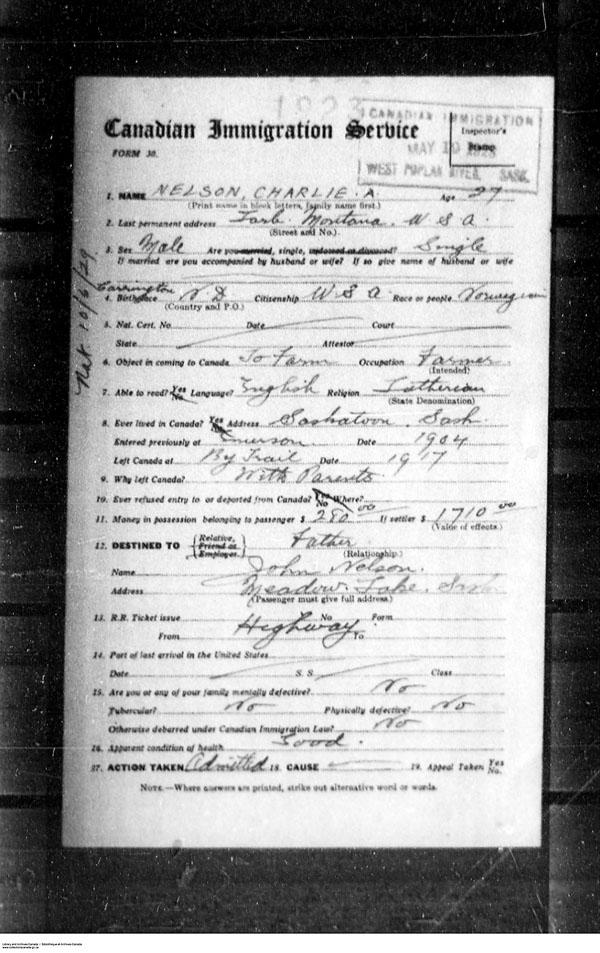 CANADIAN IMMIGRATION
MAY 10
WEST POPLAR RIVER, SASK.
Canadian Immigration Service
Inspector's
Stamp
FORM 30.
1. NAME NELSON, CHARLIE. A. Age 27
(Print name in block letters, family name first.)
2. Last permanent address Montana. U S A.
(Street and No.)
3. Sex Male Are you married, single, widowed or divorced? Single
If married are you accompanied by husband or wife? If so give name of husband or wife
Nat. 10/6/29
Carrington
4. Birthplace N D Citizenship U S A Race or people Norwegian
(Country and P.O.)
5. Nat. Cert. No. Date Court
State Attestor
6. Object in coming to Canada To Farm Occupation Farmer
(Intended)
7. Able to read? Yes No Language? English Religion Lutherian
(State Denomination)
8. Ever lived in Canada? Yes No Address Saskatoon, Sask.
Entered previously at Emerson Date 1904
Left Canada at By Trail Date 1917
9. Why left Canada? With Parents
10. Ever refused entry to or deported from Canada? Yes No Where?
11. Money in possession belonging to passenger $ 280.00 If settler $ 1710.00
(Value of effects.)
12. DESTINED TO Relative, Friend or Employer. Father
(Relationship.)
Name John Nelson.
Address Meadow Lake, Sask
(Passenger must give full address.)
13. R.R. Ticket issue No Form
From Highway To
14. Port of last arrival in the United States
Date S.S. Class
15. Are you or any of your family mentally defective? No
Tubercular? No Physically defective? No
Otherwise debarred under Canadian Immigration Law? No
16. Apparent condition of health Good.
17. ACTION TAKEN Admitted 18. CAUSE 19. Appeal Taken Yes No.
NOTE.—Where answers are printed, strike out alternative word or words.
Library and Archives Canada / Bibliothèque et Archives Canada
www.collectionscanada.gc.ca